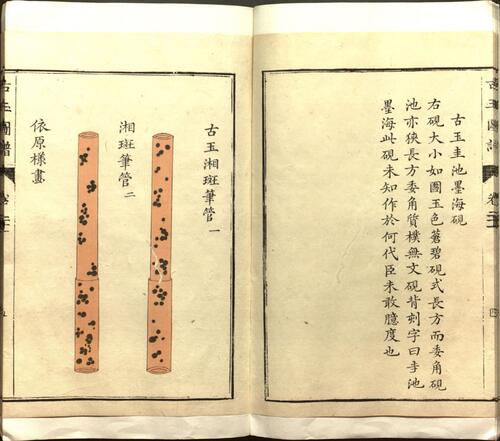 古玉圭池墨海硯
右硯大小如圖玉色蒼碧硯式長方而委角硯
池亦狹長方委角質樸無文硯背刻字曰圭池
墨海此硯未知作於何代臣未敢臆度也
古玉圖譜
四
古玉湘斑筆管一
湘斑筆管二
依原樣畫
古玉圖譜
五